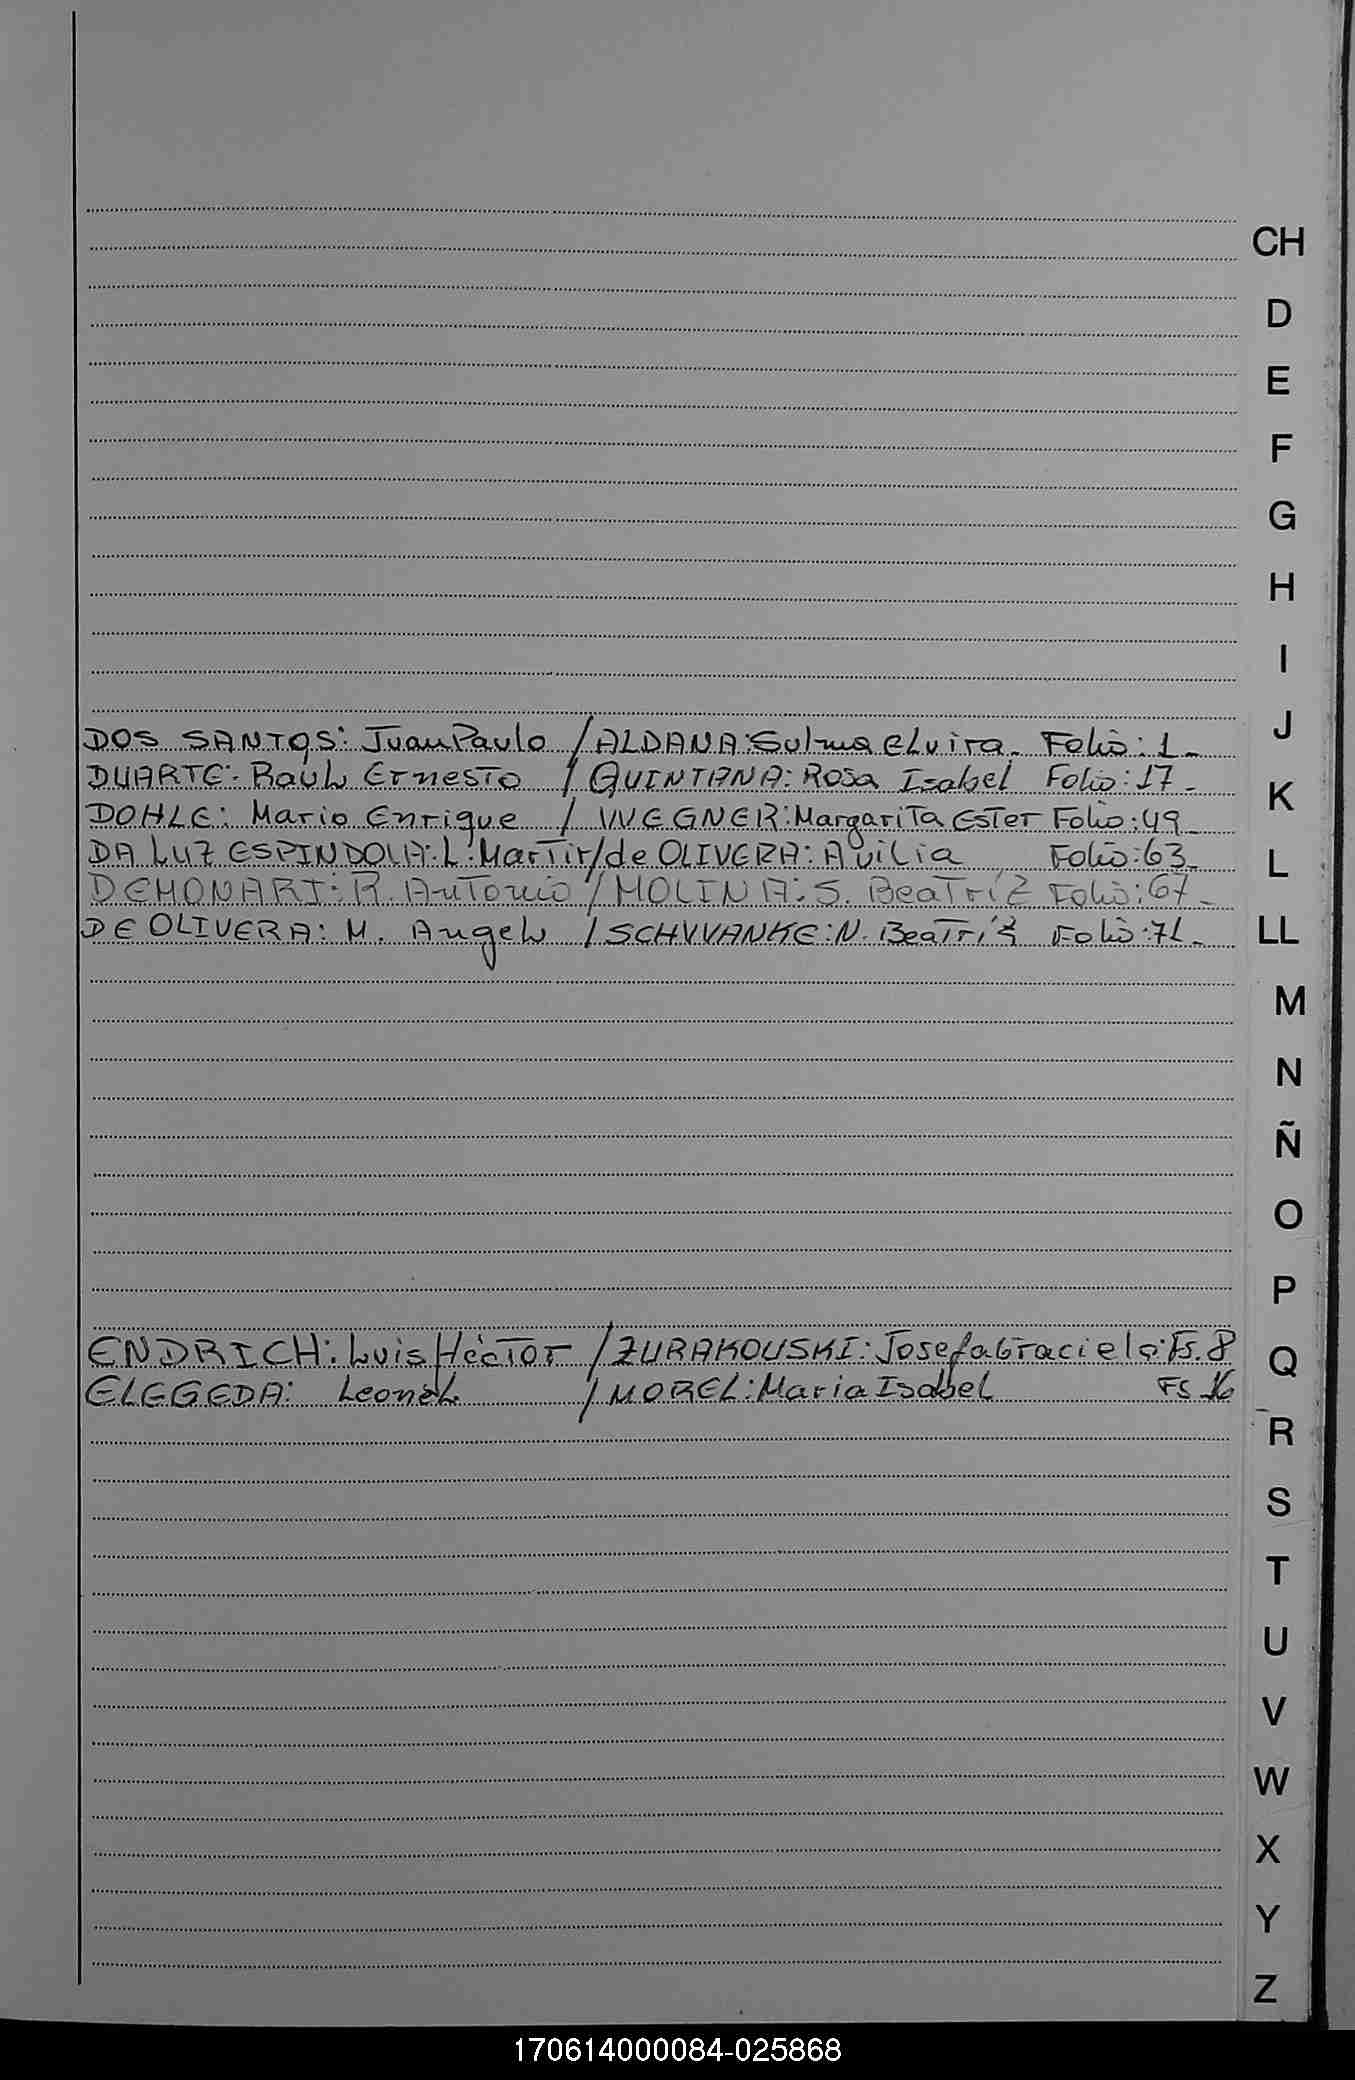 CH
D
E
F
G
H
I
J
DOS SANTOS: Juan Paulo / ALDANA: Sulma Elvira. Folio: 1-
DUARTE: Raúl Ernesto / QUINTANA: Rosa Isabel Folio: 17-
K
DOHLE: Mario Enrique / WEGNER: Margarita Ester Folio: 49-
DA LUZ ESPINDOLA: L. Martir / de OLIVERA: Avilia Folio: 63-
L
DEMONARI: R. Antonio / MOLINA: S. Beatríz Folio: 67-
DE OLIVERA: M. Angel / SCHWANKE: N. Beatríz Folio: 71-
LL
M
N
Ñ
O
P
ENDRICH: Luis Héctor / ZURAKOUSKI: Josefa Graciela: Fs. 8
Q
ELEGEDA: Leonel / MOREL: Maria Isabel FS 16
R
S
T
U
V
W
X
Y
Z
170614000084-025868